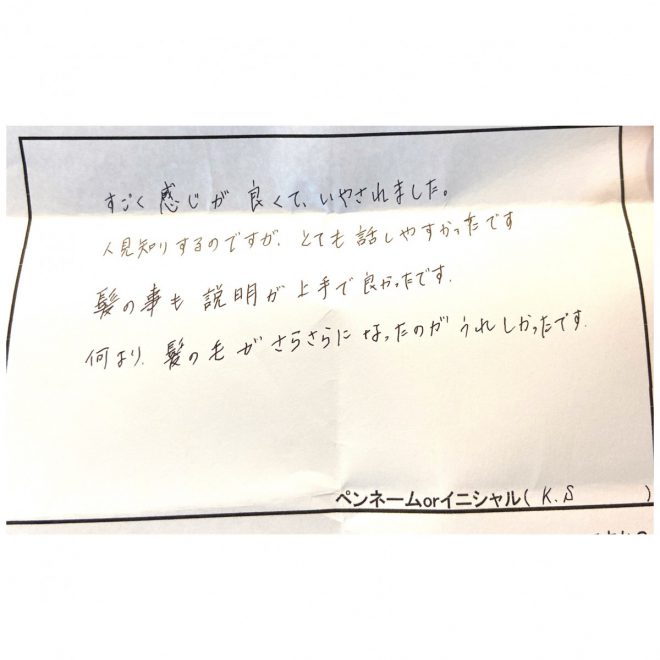 すごく感じが良くて、いやされました。
人見知りするのですが、とても話しやすかったです
髪の事も説明が上手で良かったです.
何より、髪の毛がさらさらになったのがうれしかったです.
ペンネームorイニシャル( K.S )